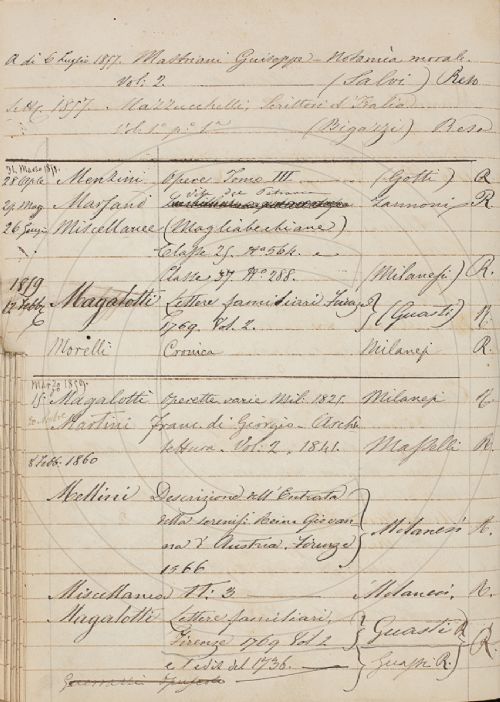 A di 6 Luglio 1857. Mastriani Guiseppe - Notomia morale.
Vol: 2. (Salvi) Reso
1857. Mazzucchelli, Scrittori d'Italia
Vol. 1° p.e 1a (Bigazzi) Reso
31. Marzo
28 Aple Menzini Opere Tomo III (Gotti) R
29 Mag. Marsand Zannoni R
26 Miscellanee (Magliabechiane)
Classe 25. No 564. e
Classe 37. No 288. (Milanesi) R.
1859
12 Febb. Magalotti Lettere familiari Firenze
1769. Vol. 2. (Guasti) R.
Morelli Cronica Milanesi R.
Marzo 1859.
15: Magalotti Operette varie Mil: 1825. Milanesi R.
Martini Franc. di Giorgio - Archi
tettura - Vol: 2, 1841. Masselli R.
8 Febb. 1860
Mellini Descrizione dell'Entrata
della sereniss. Reina Giovan
na d'Austria, Firenze Milanesi R.
1566
Miscellanea tt: 3 Milanesi, R.
Magalotti Lettere familiari,
Firenze 1769 Vol 2 Guasti R
e l'ediz del 1736. Guasti R.) R.